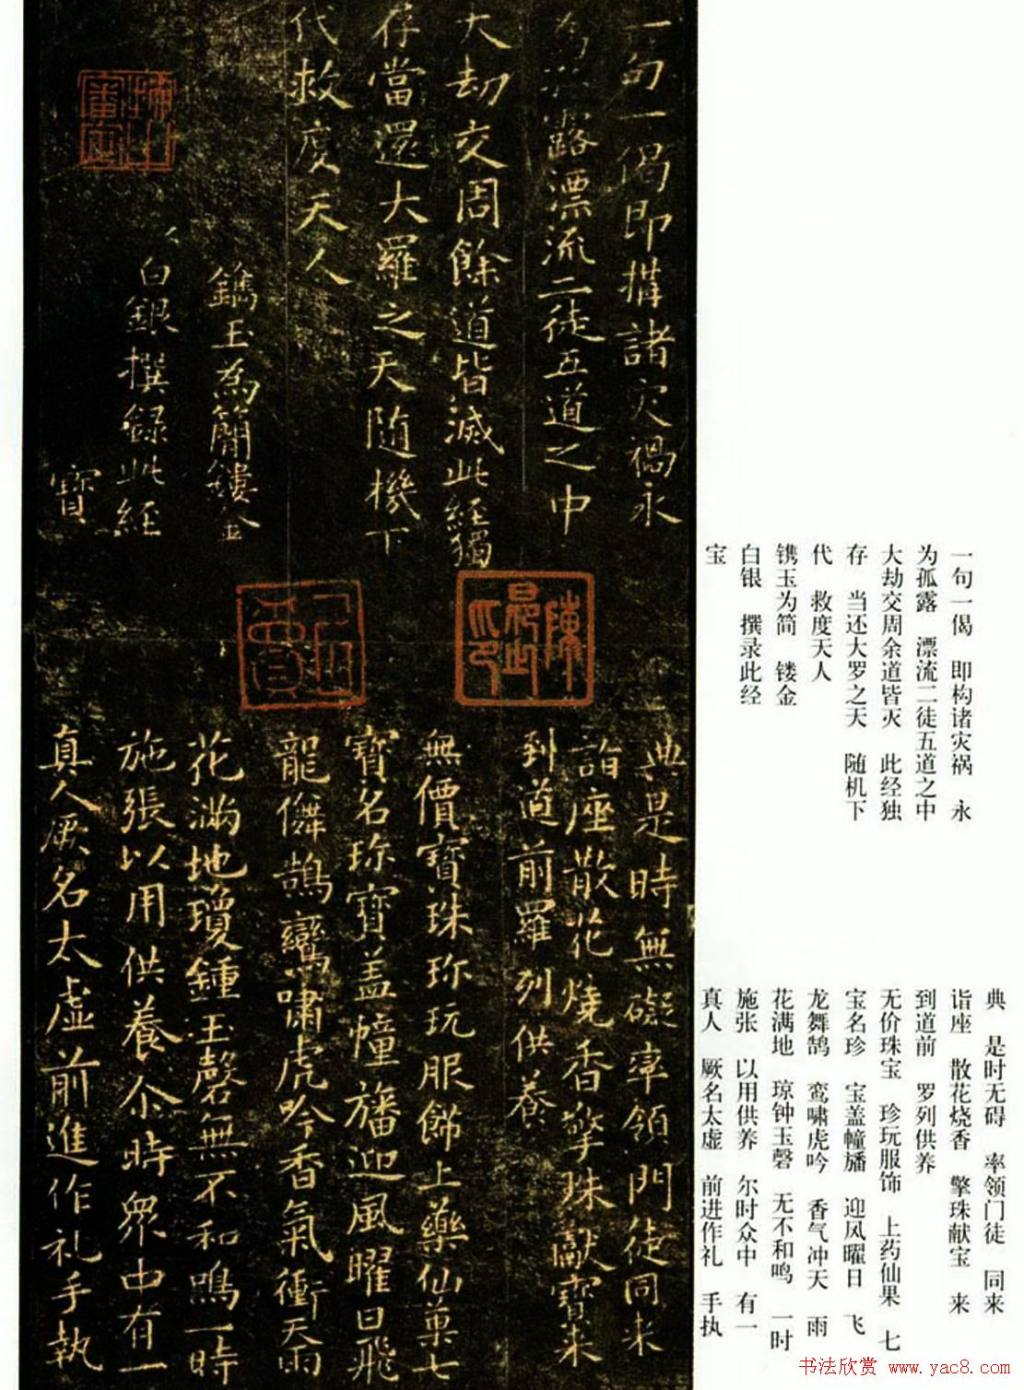 一句一偈即構諸灾禍永
為孤露漂流二徒五道之中
大劫交周餘道皆滅此經獨
存當還大羅之天随機下
代救度天人
鐫玉為簡鏤金
白銀撰録此経
寶
典是時無礙率領門徒同来
詣座散花燒香擎珠獻寶来
到道前羅列供養
無價寶珠珎玩服飾上藥仙菓七
寶名珎寶盖幢旛迎風曜日飛
龍儛鵠鸞嘯虎吟香氣衝天雨
花滿地瓊鍾玉磬無不和鳴一時
施張以用供養尒時眾中有一
真人厥名太虛前進作礼手執
一句一偈 即构诸灾祸 永
为孤露 漂流二徒五道之中
大劫交周余道皆灭 此经独
存 当还大罗之天 随机下
代 救度天人
镌玉为简 镂金
白银 撰录此经
宝
典 是时无碍 率领门徒 同来
诣座 散花烧香 擎珠献宝 来
到道前 罗列供养
无价珠宝 珍玩服饰 上药仙果 七
宝名珍 宝盖幢旛 迎风曜日 飞
龙舞鹄 鸾啸虎吟 香气冲天 雨
花满地 琼钟玉磬 无不和鸣 一时
施张 以用供养 尔时众中 有一
真人 厥名太虚 前进作礼 手执
书法欣赏 www.yac8.com